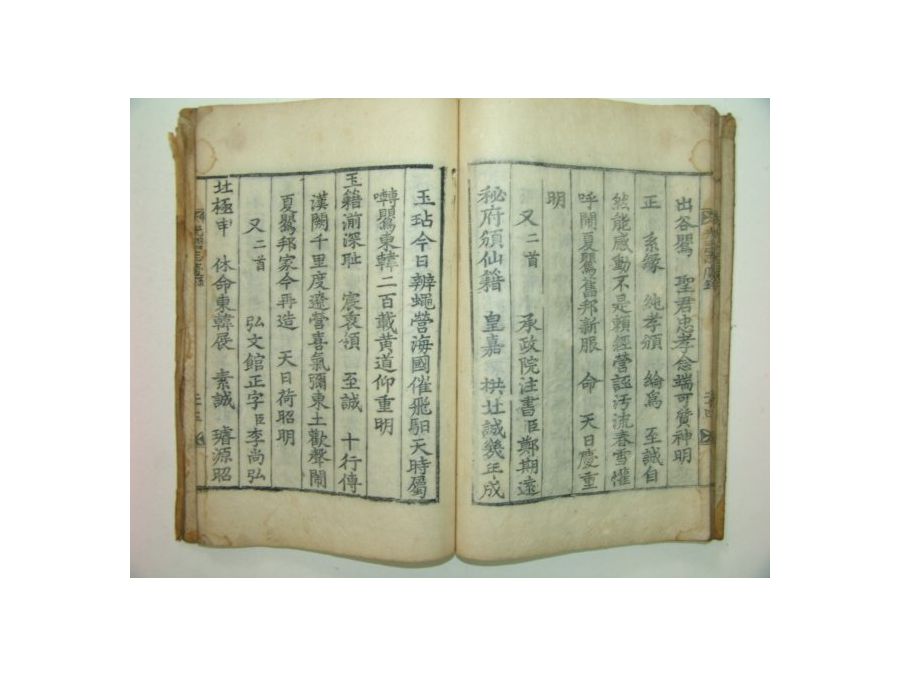 出谷鸎 聖君忠孝念端可質神明
正 系緣 純孝頒 綸爲 至誠自
然能感動不是賴經營誣汚流春雪懽
呼閙夏鸎舊邦新服 命 天日慶重
明
又二首 承政院注書臣鄭期遠
秘府頒仙籍 皇嘉 拱北誠幾年成
玉玷今日辨蠅營海國催飛馹天時屬
囀鸎東韓二百載黄道仰重明
玉籍湔深耻 宸衷領 至誠 十行傳
漢闕千里度遼營喜氣彌東土歡聲閙
夏鸎邦家今再造 天日荷昭明
又二首 弘文館正字臣李尚弘
北極申 休命東韓展 素誠 璿源昭